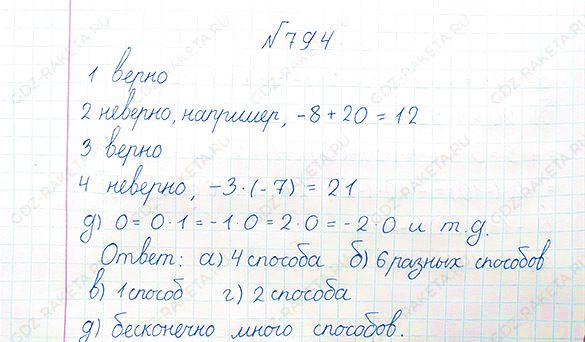 №794
1 верно
2 неверно, например, -8+20=12
3 верно
4 неверно, -3·(-7)=21
д) 0=0·1=-1·0=2·0=-2·0 и т.д.
Ответ: а) 4 способа б) 6 разных способов
в) 1 способ г) 2 способа
д) бесконечно много способов.
GDZ-RAKETA.RU